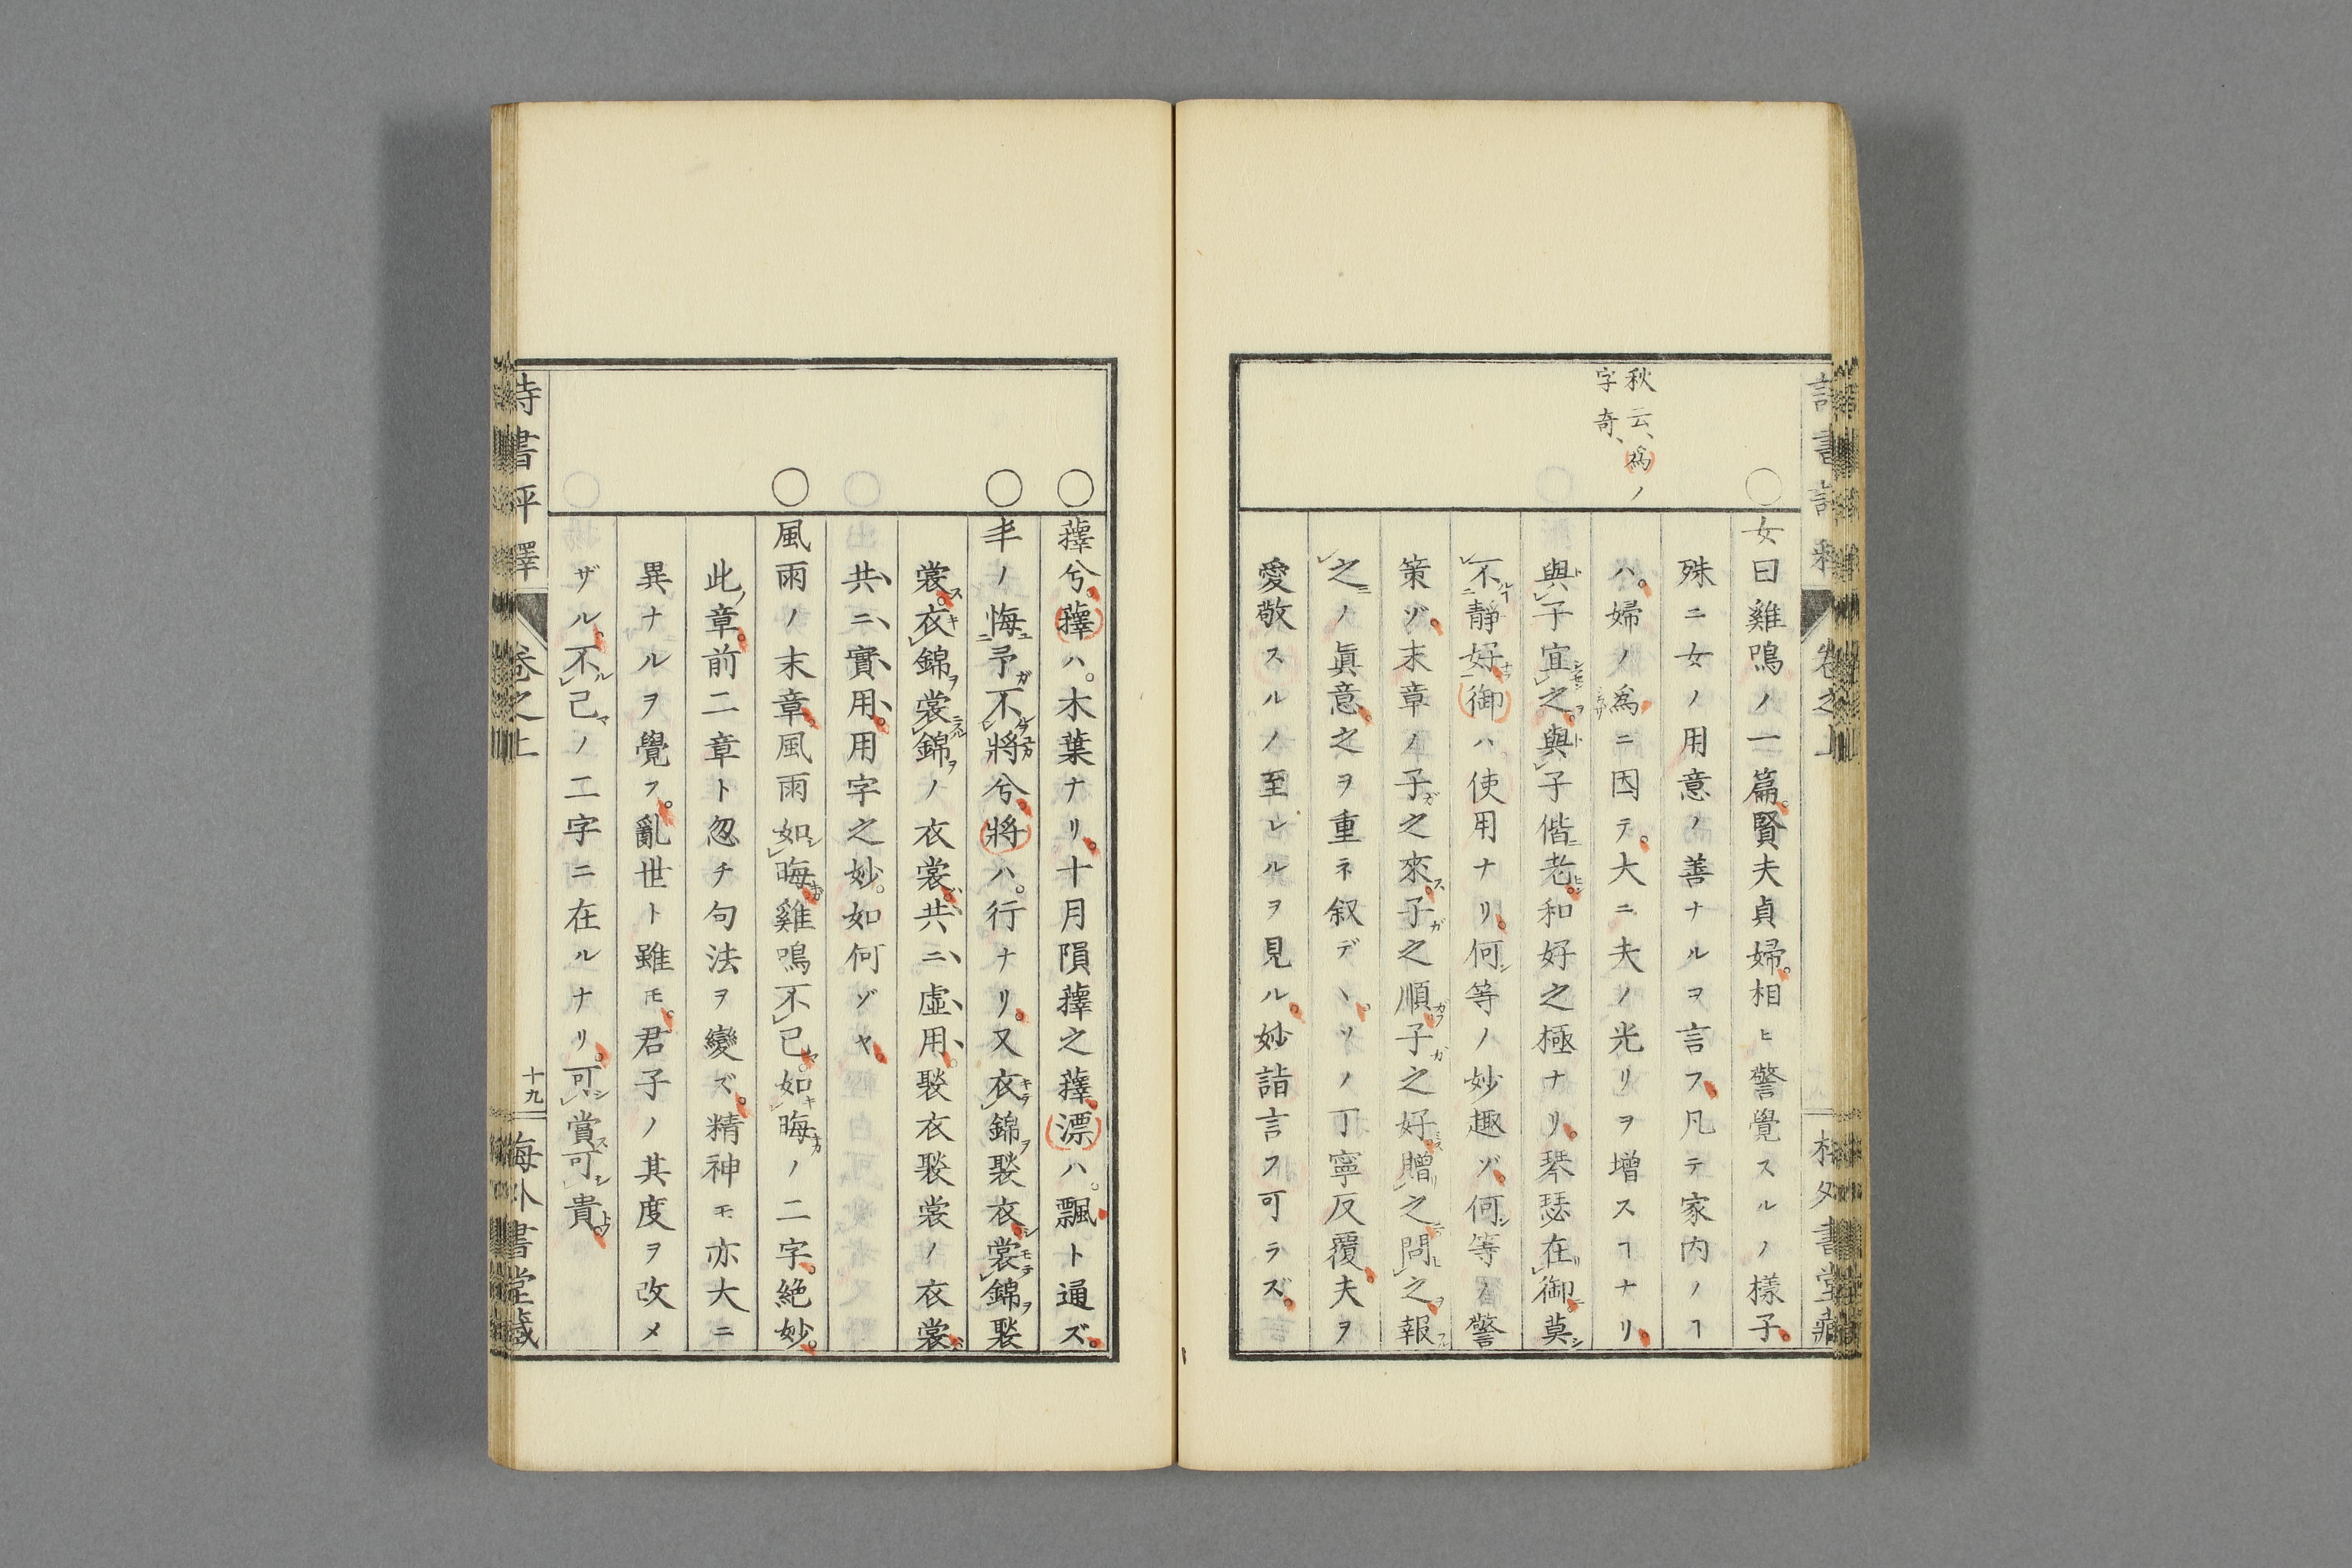 秋云、爲ノ
字奇、
○女曰雞鳴ノ一篇。賢夫貞婦。相ヒ警覺スルノ樣子。
殊ニ女ノ用意ノ善ナルヲ言フ。凡テ家内ノヿ
ハ。婦ノ爲ニ因テ。大ニ夫ノ光リヲ增スヿナリ。
與子宜之。與子偕老。和好之極ナリ。琴瑟在御。莫
不靜好。御ハ使用ナリ。何等ノ妙趣ゾ。何等ノ警
策ゾ。末章ノ子之來。子之順。子之好。贈之。問之。報
之ノ眞意。之ヲ重ネ叙デヽ。ソノ丁寧反覆。夫ヲ
愛敬スルノ至レルヲ見ル。妙詣言フ可ラズ。
○蘀兮。蘀ハ。木葉ナリ。十月隕蘀之蘀。漂ハ。飄ト通ズ。
○丰ノ悔予不將兮。將ハ。行ナリ。又衣錦褧衣。裳錦褧
裳。衣錦裳錦ノ衣裳。共ニ虛用。褧衣褧裳ノ衣裳。
共ニ實用。用字之妙。如何ゾヤ。
○風雨ノ末章。風雨如晦。雞鳴不已。如晦ノ二字。絶妙。
此章。前二章ト忽チ句法ヲ變ズ。精神モ亦大ニ
異ナルヲ覺フ。亂世ト雖モ。君子ノ其度ヲ改メ
ザル。不已ノ二字ニ在ルナリ。可賞可貴。
卷之上
十九
書堂藏